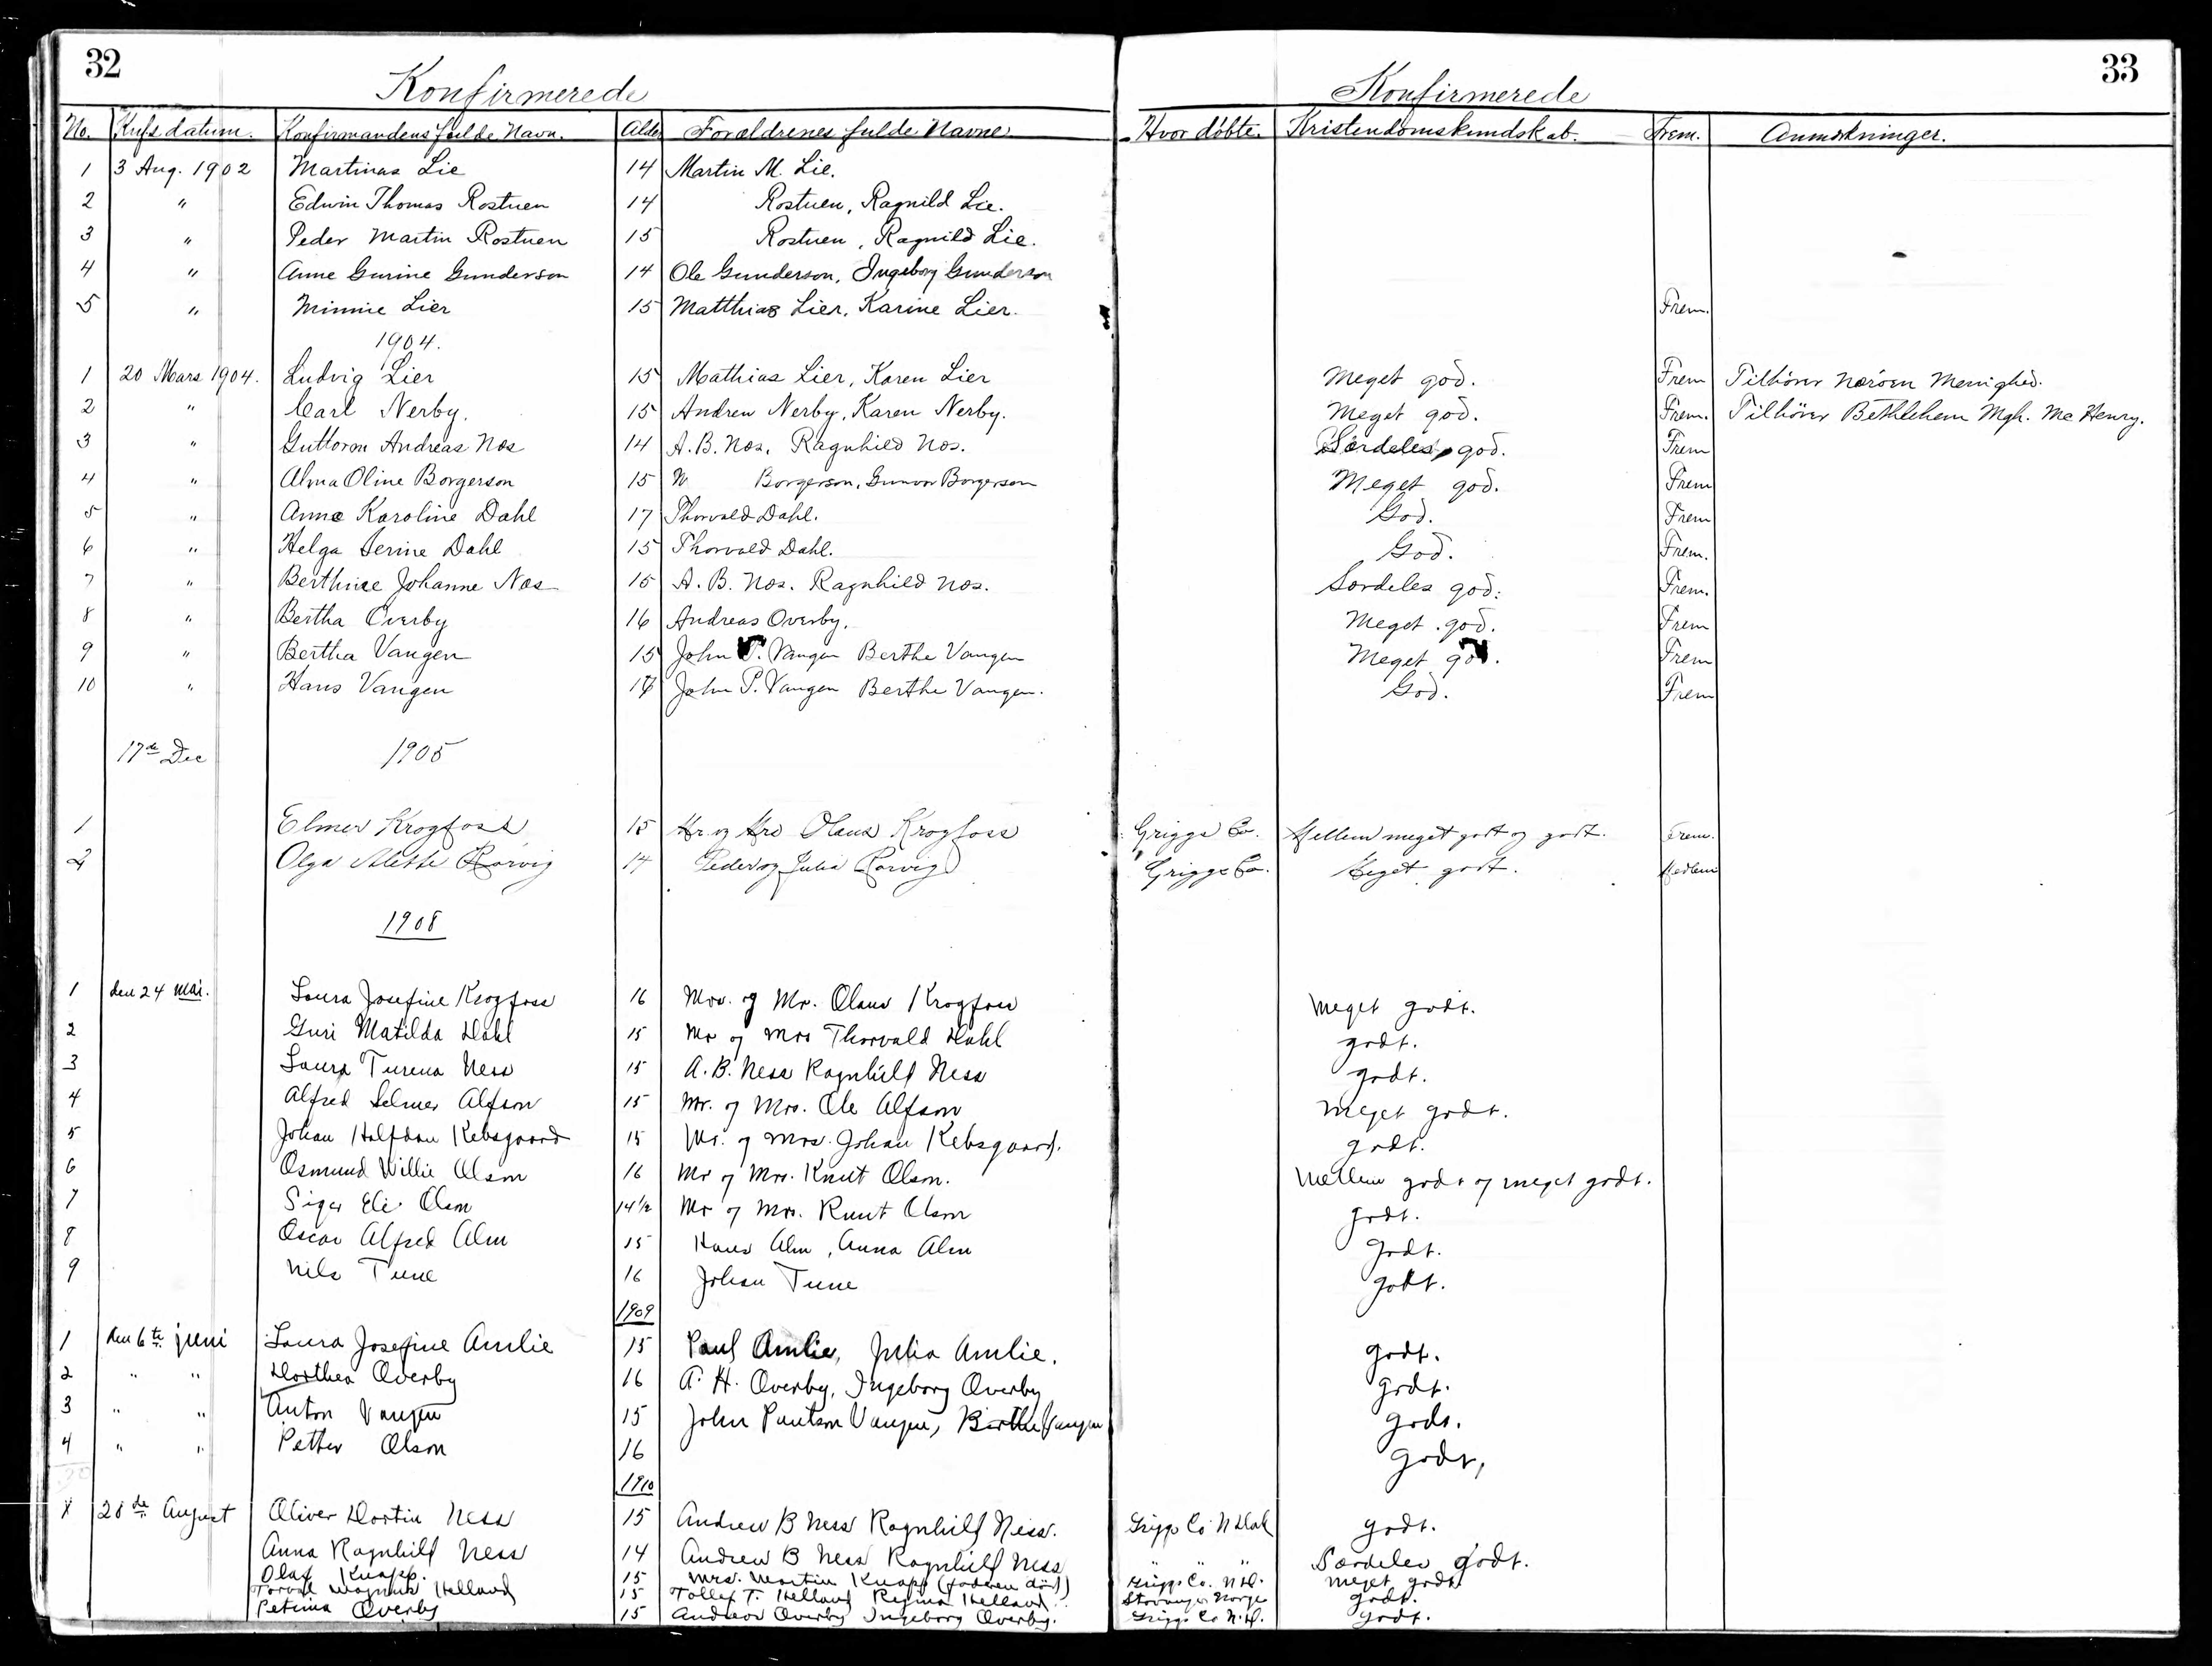 32
Konfirmerede
Konfirmerede
33
No. Kufs datum. Konfirmandens fulde Navn. Alder Forældrenes fulde Navne. Hvor döbte. Kristendomskundskab. Frem. Anmærkninger.
1 3 Aug. 1902 Martinas Lie 14 Martin M. Lie.
2 " Edwin Thomas Rostuen 14 Rostuen, Ragnild Lie.
3 " Peder Martin Rostuen 15 Rostuen, Ragnild Lie.
4 " Anne Gurine Gunderson 14 Ole Gunderson, Ingeborg Gunderson
5 " Minnie Lier 15 Matthias Lier, Karine Lier. Frem.
1904.
1 20 Mars 1904. Ludvig Lier 15 Mathias Lier, Karen Lier Meget god. Frem Tilhörer Nöröen Menighed.
2 " Carl Nerby. 15 Andrew Nerby, Karen Nerby. Meget god. Frem. Tilhörer Bethlehem Mgh. Mc Henry.
3 " Guttorm Andreas Næs 14 A. B. Nos, Ragnhild Nos. Særdeles god. Frem
4 " Alma Oline Borgerson 15 N Borgerson, Gunvor Borgerson Meget god. Frem
5 " Anne Karoline Dahl 17 Thorvald Dahl. God. Frem
6 " Helga Serine Dahl 15 Thorvald Dahl. God. Frem.
7 " Berthine Johanne Næs 15 A. B. Nos. Ragnhild Nos. Særdeles god. Frem.
8 " Bertha Overby 16 Andreas Overby. Meget god. Frem
9 " Bertha Vangen 15 John P. Vangen Berthe Vangen Meget god. Frem
10 " Hans Vangen John P. Vangen Berthe Vangen. God. Frem
17de Dec 1905
1 Elmer Krogfoss 15 Mr og Mrs Olaus Krogfoss Griggs Co. Mellem meget godt og godt. Frem.
2 Olga Alette Rorvig 14 Peder og Julia Rorvig Griggs Co. Meget godt. Medlem
1908
1 den 24 mai. Laura Josefine Krogfoss 16 Mrs. og Mr. Olaus Krogfoss meget godt.
2 Guri Matilda Dahl 15 Mr og Mrs Thorvald Dahl godt.
3 Laura Turena Ness 15 A. B. Ness Ragnhild Ness godt.
4 Alfred Selmer Alfson 15 Mr. og Mrs. Ole Alfson meget godt.
5 Johan Halfdan Kebsgaard 15 Mr. og Mrs. Johan Kebsgaard. godt.
6 Osmund Willie Olson 16 Mr og Mrs. Knut Olson. mellem godt og meget godt.
7 Eli Olson 14½ Mr og Mrs. Knut Olson godt.
8 Oscar Alfred Alm 15 Hans Alm, Anna Alm godt.
9 Nils Tune 16 Johan Tune godt.
1909
1 den 6te juni Laura Josefine Amlie 15 Paul Amlie, Julia Amlie. godt.
2 " " Dorthea Overby 16 A. H. Overby, Ingeborg Overby godt.
3 " " Anton Vangen 15 John Paulson Vangen, Berthe Vangen godt.
4 " " Petter Olson 16 godt,
1910
1 28de August Oliver Martin Ness 15 Andrew B Ness Ragnhild Ness. Griggs Co N Dak godt.
Anna Ragnhild Ness 14 Andrew B Ness Ragnhild Ness " " " Særdeles godt.
Olaf Knapp. 15 Mrs. Martin Knapp (faderen död) Griggs Co. N.D. meget godt
Torval Magnus Helland 15 Tollef T. Helland Regina Helland. Stavanger Norge godt.
Petrina Overby 15 Andreas Overby Ingeborg Overby. Griggs Co N.D. godt.